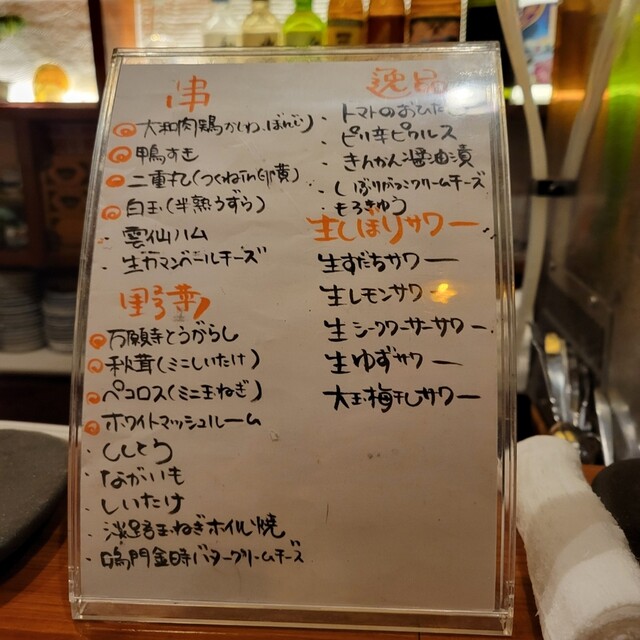 串
大和肉鶏かしわ、ぼんじり
鴨すき
二重丸(つくねin卵黄)
白玉(半熟うずら)
雲仙ハム
生カマンベールチーズ
野菜
万願寺とうがらし
秋茸(ミニしいたけ)
ペコロス(ミニ玉ねぎ)
ホワイトマッシュルーム
ししとう
ながいも
しいたけ
淡路玉ねぎホイル焼
鳴門金時バタークリームチーズ
逸品
トマトのおひたし
ピリ辛ピクルス
きんかん醤油漬
いぶりがっこクリームチーズ
もろきゅう
生しぼりサワー
生すだちサワー
生レモンサワー
生シークワーサーサワー
生ゆずサワー
大玉梅干しサワー